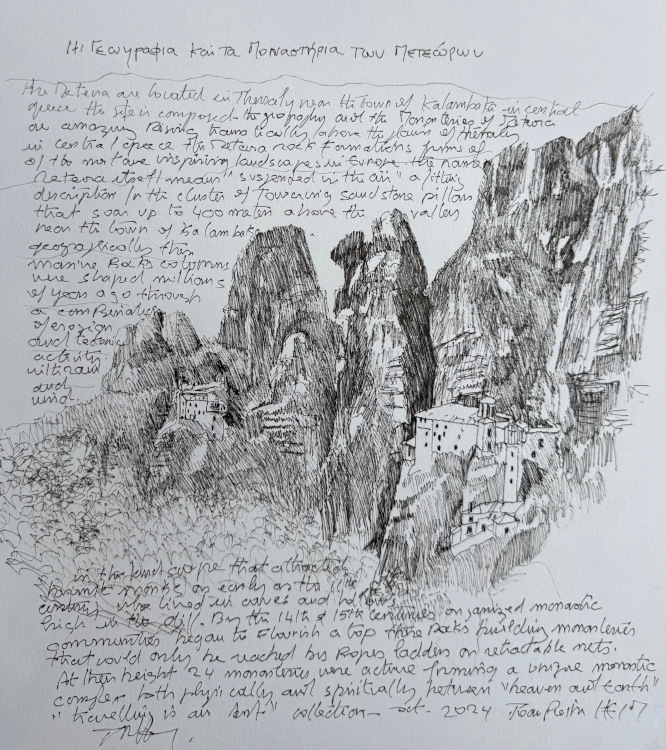 Ηι Γεωγραφια και τα Μοναστήρια των Μετεώρων
the Meteora are located in Thessaly near the town of Kalambaka in central
greece the site is composed the geography and the Monasteries of Meteora
an amazing Rising dramatically above the plains of thessaly
in central greece the Meteora rock formations forms of
of the most awe inspiring landscapes in Europe the name
Meteora itself mean "suspended in the air" a fitting
description for the cluster of Towering sandstone pillars
that soar up to 400 meters above the valley
near the town of Kalambaka
geographically the
massive Rocks columns
were shaped millions
of years ago through
a combination
of erosion
and tectonic
activity
with rain
and
wind.
in the landscape that attracted
hermit monks as early as the
century who lived in caves and hollows
high in the cliff. By the 14th & 15th Centuries organized monastic
communities began to Flourish atop these Rocks building monasteries
that would only be reached by Ropes ladders or retractable nets.
At their height 24 monasteries were active forming a unique monastic
complex both physically and spiritually between "heaven and Earth"
"travelling is an art" collection - oct. 2024